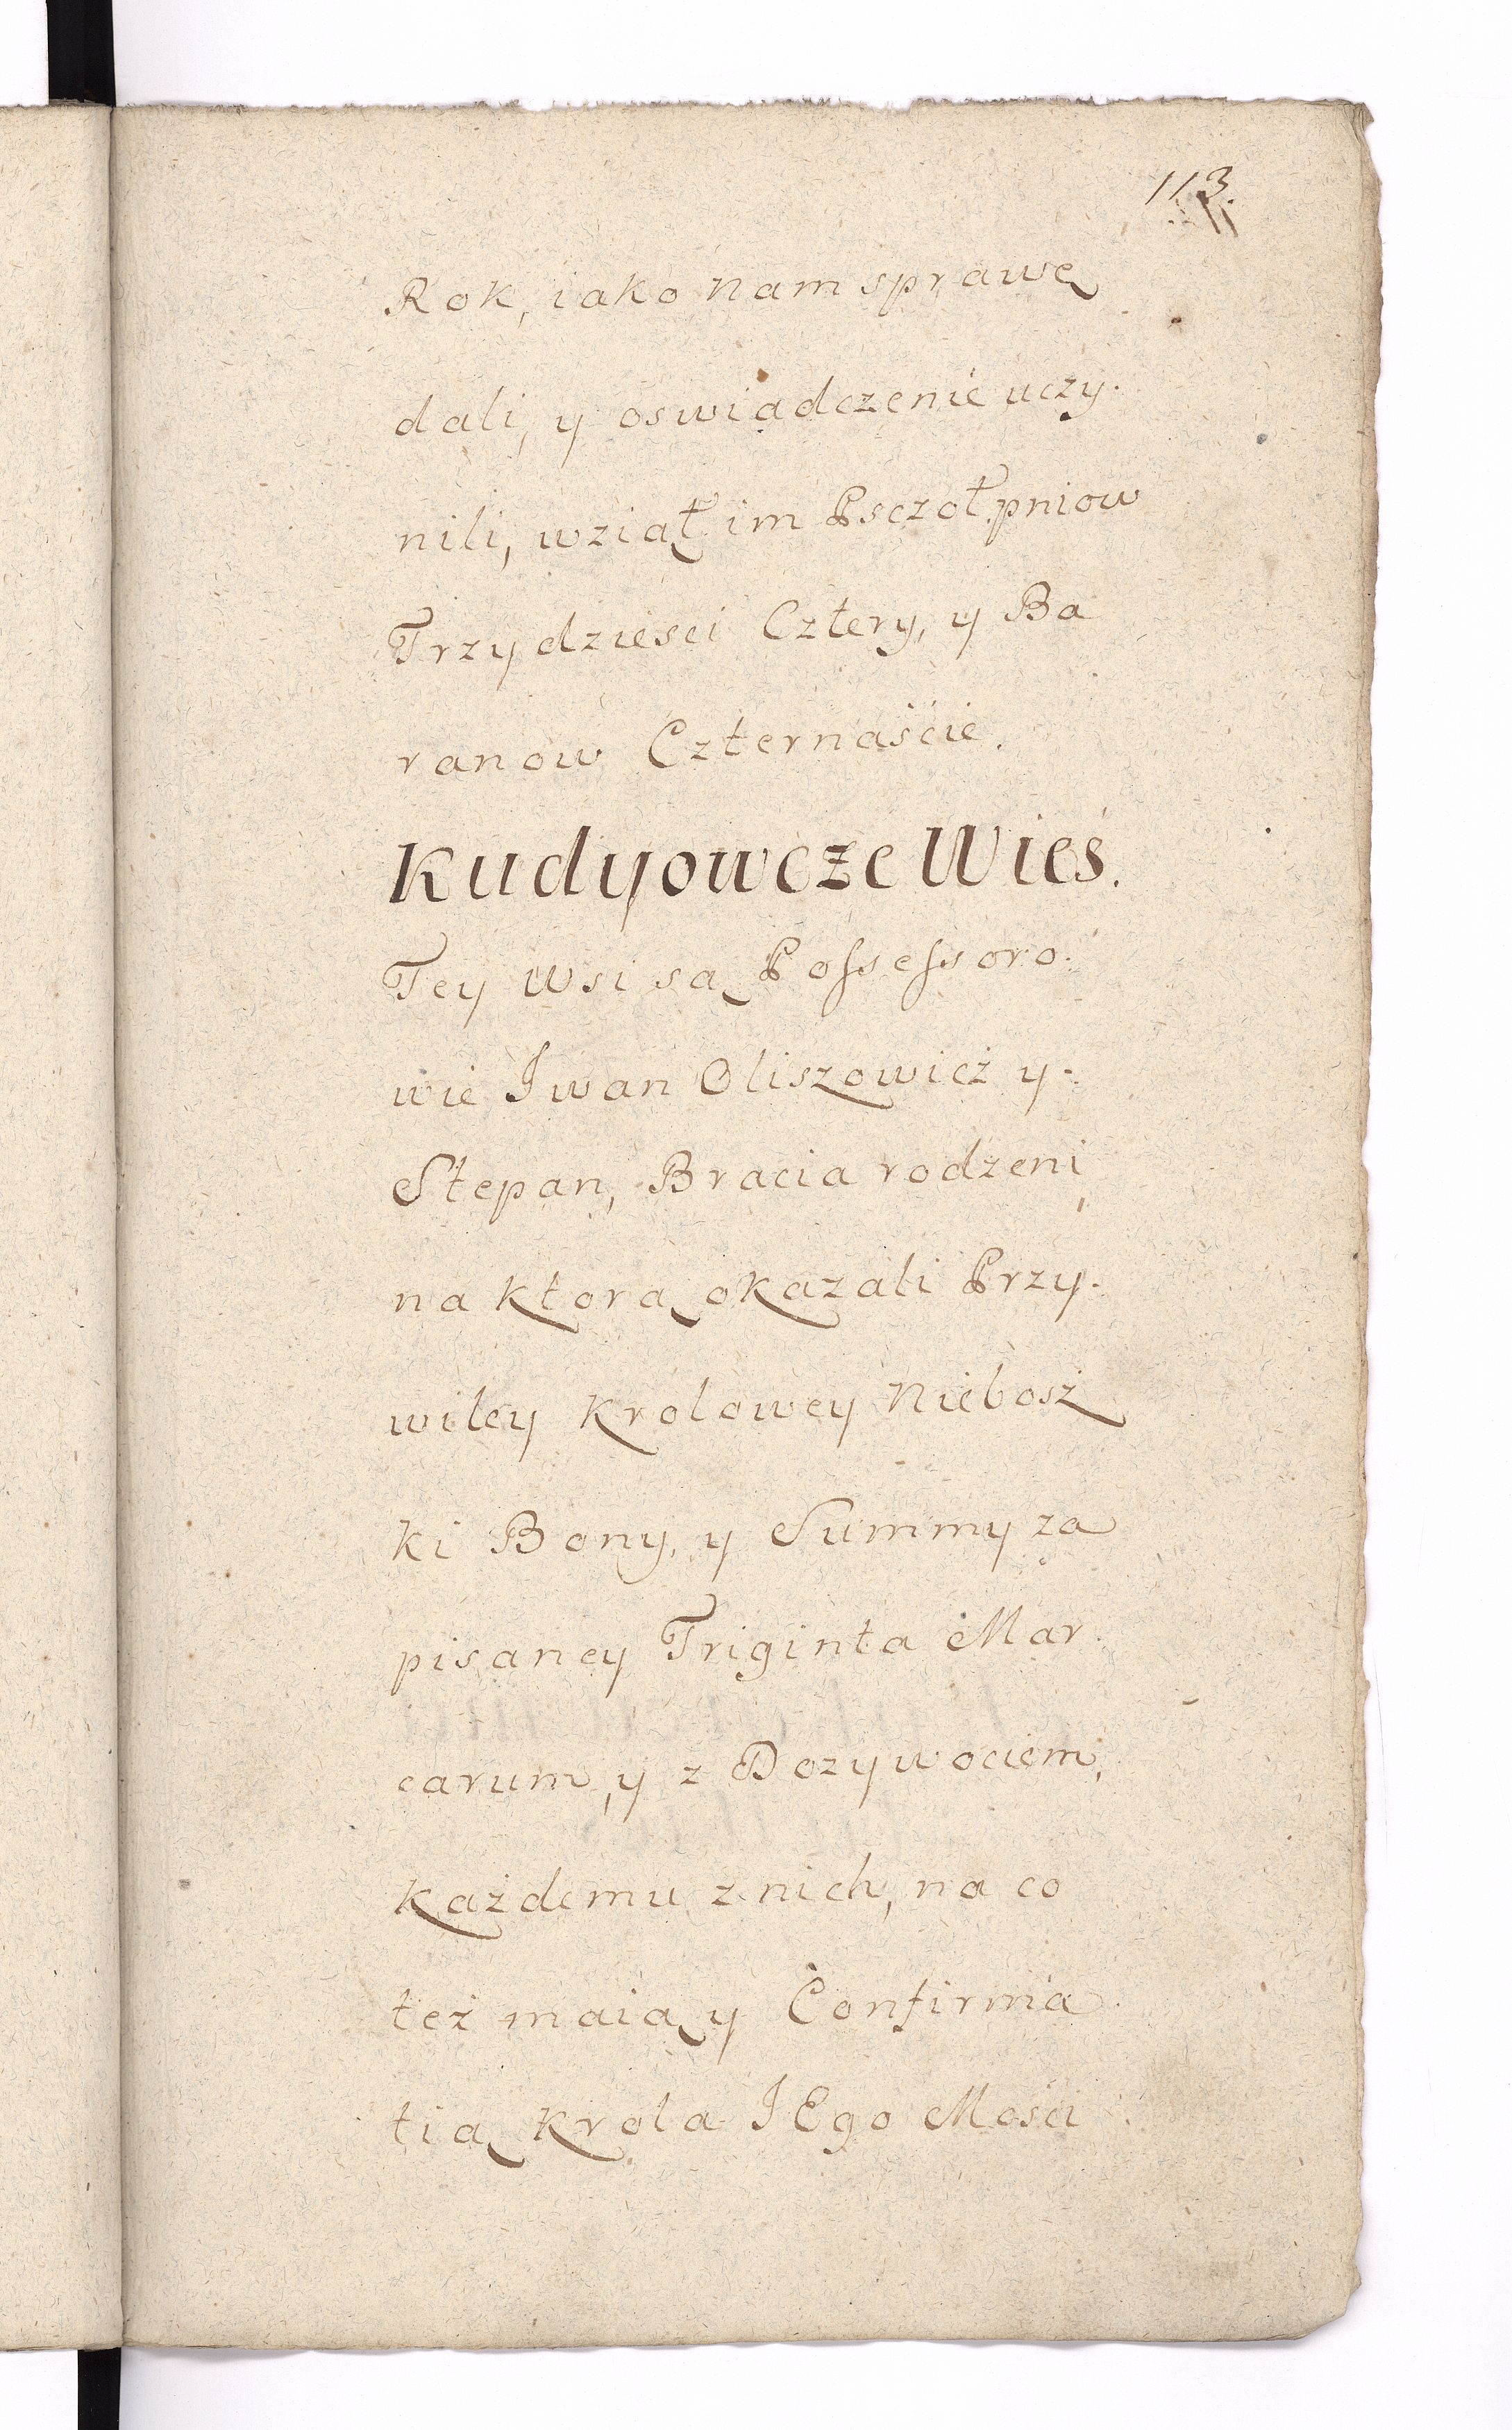 113.
Rok, iako nam sprawę
dali, y oswiadczenie uczy.
nili, wziął im Psczoł pniow
Trzydziesci Cztery, y Ba
ranow Czternaście.
Kudyowcze Wieś.
Tey Wsi są Possessoro.
wie Iwan Oliszowicż y.
Stepan, Bracia rodzeni,
na ktorą okazali Przy.
wiley Krolowey Niebosż
ki Bony, y Summy za
pisaney Triginta Mar.
carum, y z Dozywociem,
Każdemu z nich, na co
też maią y Confirma
tią Krola IEgo Mości